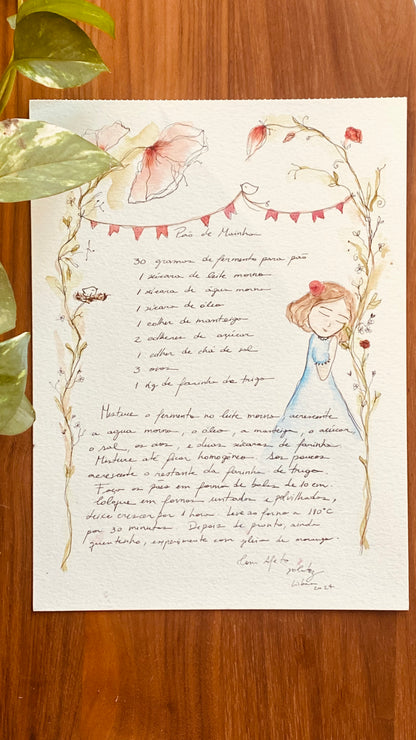 Pão de Mainha
30 gramas de fermento para pão
1 xícara de leite morno
1 xícara de água morna
1 xícara de óleo
1 colher de manteiga
2 colheres de açúcar
1 colher de chá de sal
3 ovos
1 Kg de farinha de trigo
Misture o fermento no leite morno, acrescente
a agua morna, o óleo, a manteiga, o açúcar
o sal, os ovos, e duas xícaras de farinha.
Misture até ficar homogêneo. Aos poucos
acrescente o restante da farinha de trigo.
Faça os pães em forma de bolas de 10 cm.
Coloque em formas untadas e polvilhadas,
deixe crescer por 1 hora. Leve ao forno a 180°C
por 30 minutos. Depois de pronto, ainda
quentinho, experimente com geleia de morango.
Com Afeto
Lisboa
2024